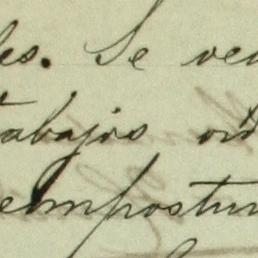 les. Se ven
tabajos or
empostur